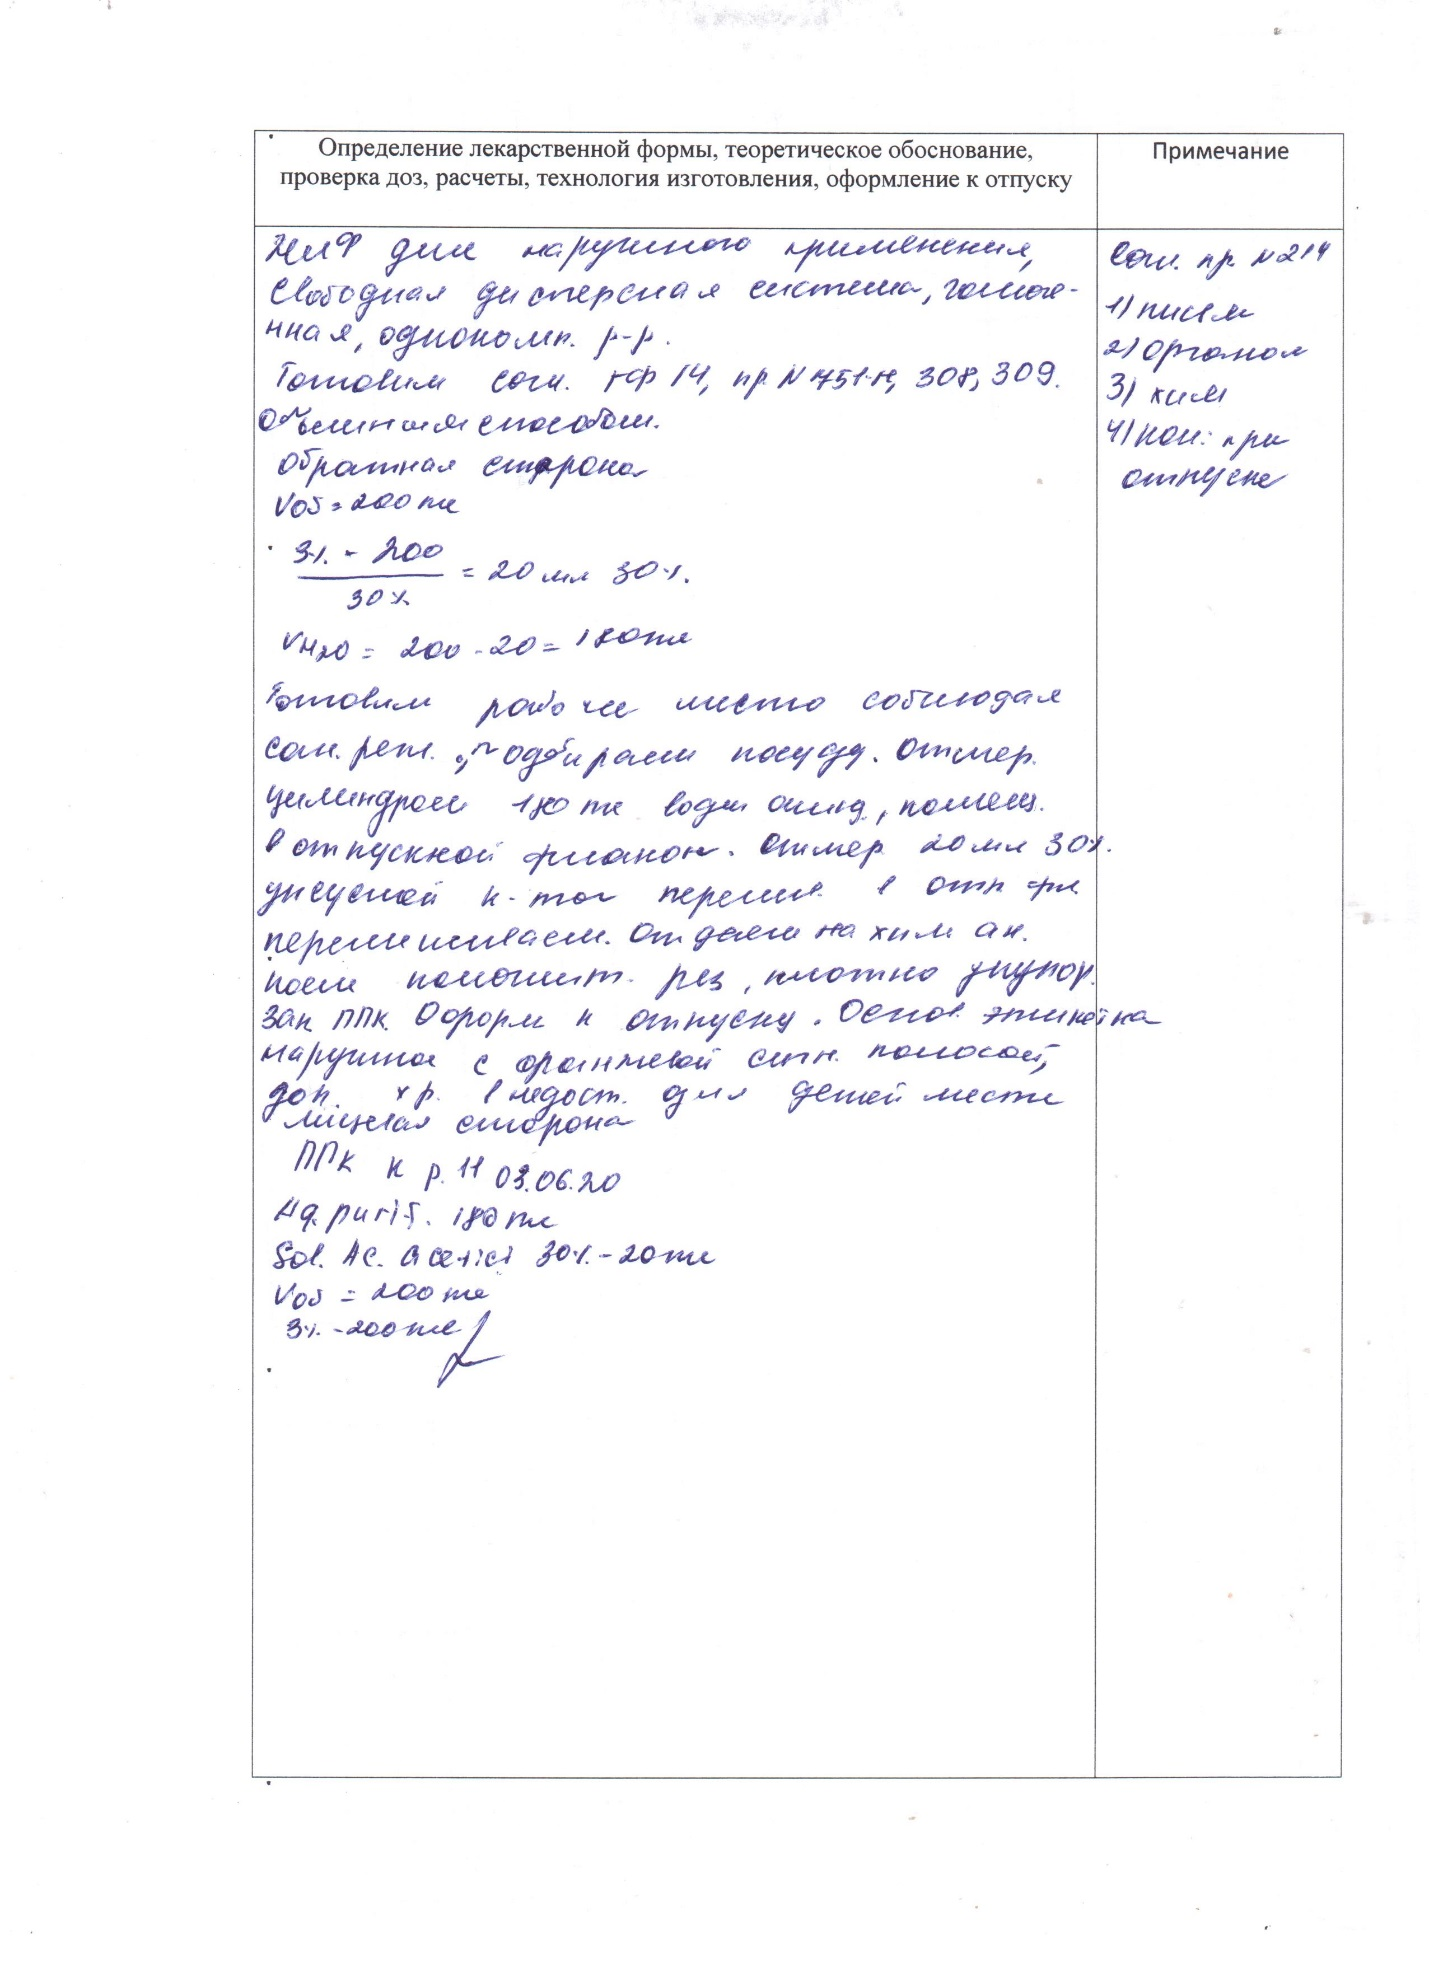 Определение лекарственной формы, теоретическое обоснование,
проверка доз, расчеты, технология изготовления, оформление к отпуску
Примечание
ЖЛФ для наружного применения,
свободная дисперсная система, гомоге-
нная, однокомп. р-р.
Готовим согл. ГФ 14, пр. N 751-н, 308, 309.
Объемным способом.
Обратная сторона
Vоб = 200 мл
3% - 200
= 20 мл 30%.
30%
VH2O = 200 - 20 = 180 мл
Готовим рабочее место соблюдая
сан. реж., подбираем посуду. Отмер.
цилиндром 180 мл воды очищ., помещ.
в отпускной флакон. Отмер 20 мл 30%.
уксусной к-ты перелив. в отп фл
перемешиваем. Отдаем на хим ан.
после положит. рез, плотно укупор.
Зап ППК. Оформ к отпуску. Основ. этикетка
наружное с оранжевой сигн. полосой,
доп. хр. в недост. для детей месте
лицевая сторона
ППК к р. 11 03.06.20
Aq. purif. 180 мл
Sol. Ac. acetici 30% - 20 мл
Vоб = 200 мл
3% - 200 мл
Согл. пр. N 214
1) письм
2) органол
3) хим
4) кон. при
отпуске